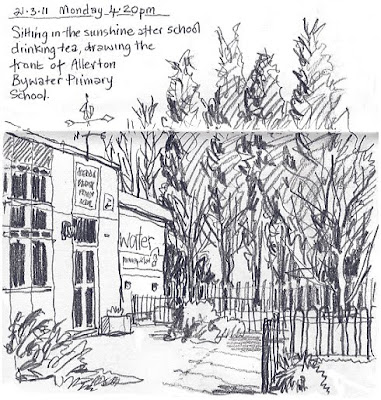 21·3·11 Monday 4·20pm
Sitting in the sunshine after school
drinking tea, drawing the
front of Allerton
Bywater Primary
School.
N E
water